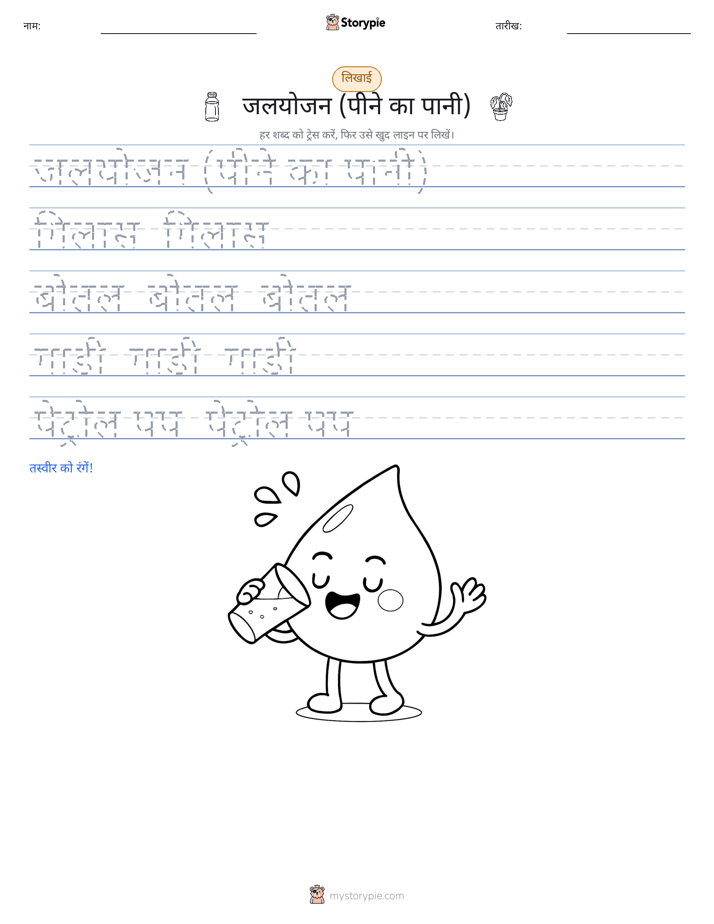 नाम:
Storypie
तारीख:
लिखाई
जलयोजन (पीने का पानी)
हर शब्द को ट्रेस करें, फिर उसे खुद लाइन पर लिखें।
जलयोजन (पीने का पानी)
गिलास गिलास
बोतल बोतल बोतल
गाडी गाडी गाडी
पेट्रोल पप पेट्रोल पप
तस्वीर को रंगें!
mystorypie.com